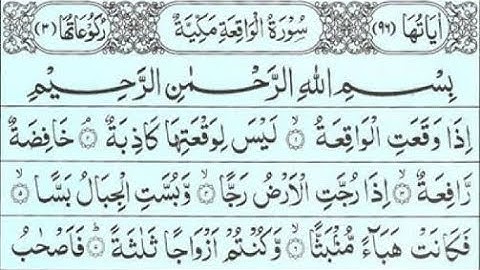 اٰيَاتُهَا (٩٦) سُوْرَةُ الْوَاقِعَةِ مَكِّيَّةٌ رُكُوْعَاتُهَا (٣)
بِسْمِ اللهِ الرَّحْمٰنِ الرَّحِيْمِ
اِذَا وَقَعَتِ الْوَاقِعَةُ ۝١ لَيْسَ لِوَقْعَتِهَا كَاذِبَةٌ ۝٢ خَافِضَةٌ
رَّافِعَةٌ ۝٣ اِذَا رُجَّتِ الْاَرْضُ رَجًّا ۝٤ وَّبُسَّتِ الْجِبَالُ بَسًّا ۝٥
فَكَانَتْ هَبَآءً مُّنْۢبَثًّا ۝٦ وَّكُنْتُمْ اَزْوَاجًا ثَلٰثَةً ۝٧ فَاَصْحٰبُ